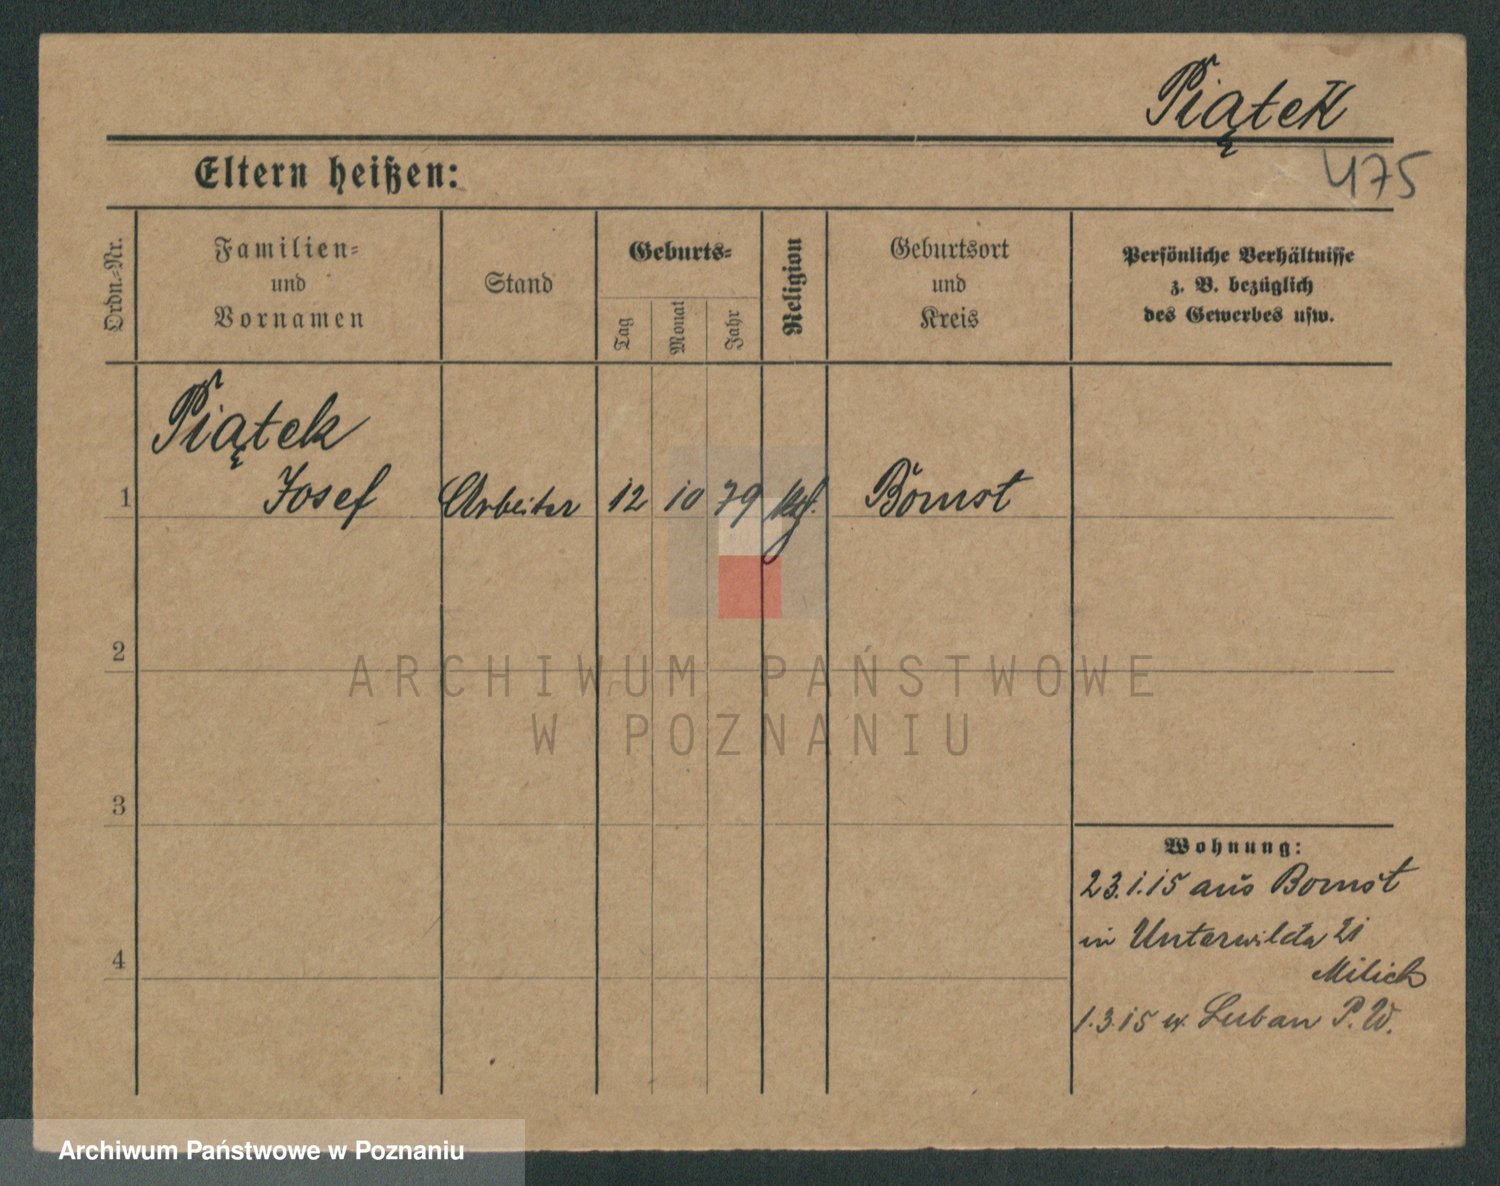 Piątek
475
Eltern heißen:
Ordn.-Nr.
Familien-
und
Vornamen
Stand
Geburts-
Tag
Monat
Jahr
Religion
Geburtsort
und
Kreis
Persönliche Verhältnisse
z. B. bezüglich
des Gewerbes usw.
Piątek
1 Josef Arbeiter 12 10 79 Bomst
2
3
4
Wohnung:
23.1.15 aus Bomst
in Unterwilda 21
Milich
1.3.15 n. Luban P.W.
ARCHIWUM PAŃSTWOWE
W POZNANIU
Archiwum Państwowe w Poznaniu